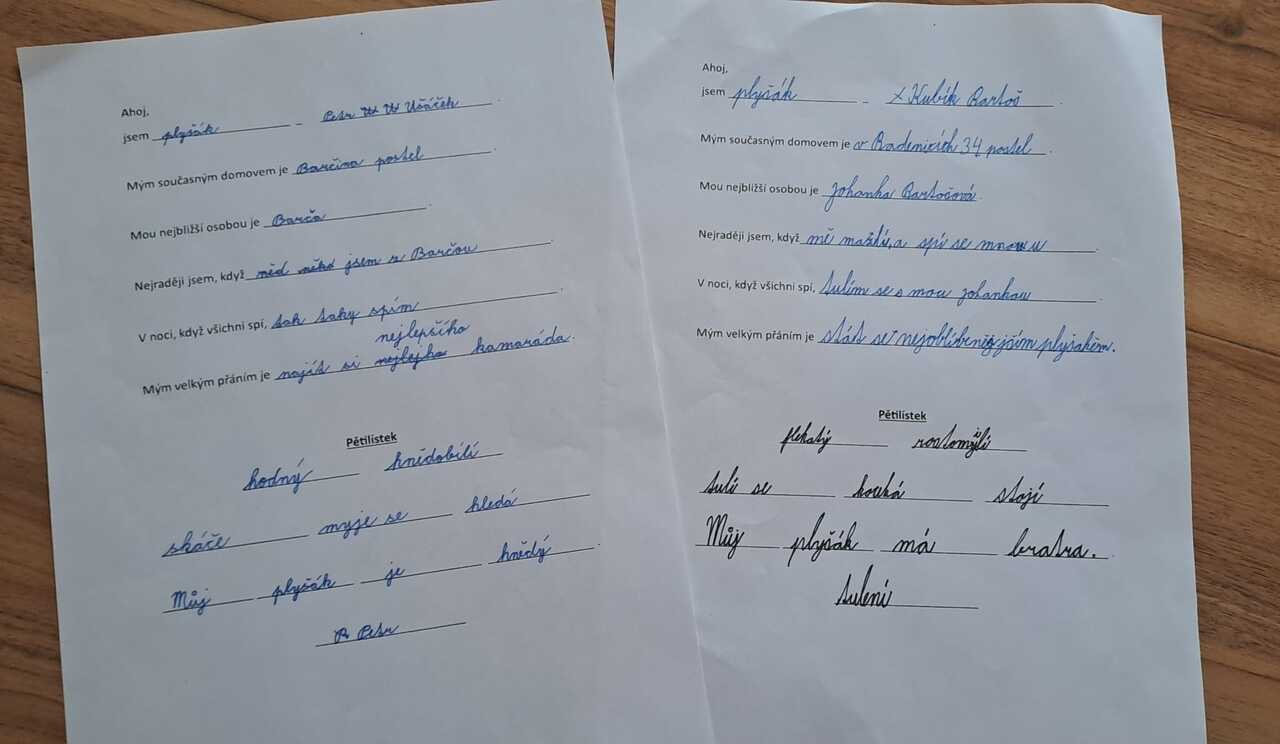 Ahoj,
jsem plyšák - Petr Ušáček
Mým současným domovem je Barčina postel
Mou nejbližší osobou je Barča
Nejraději jsem, když jsem s Barčou
V noci, když všichni spí, tak taky spím
nejlepšího
Mým velkým přáním je najít si nejlejho kamaráda.
Pětilístek
hodný hnědobílí
skáče myje se hledá
Můj plyšák je hnědý
Petr
Ahoj,
jsem plyšák - Kubík Bartoš
Mým současným domovem je v Radenicích 34 postel
Mou nejbližší osobou je Johanka Bartošová
Nejraději jsem, když mě mazlí, a spí se mnou
V noci, když všichni spí, tulím se s mou Johankou
Mým velkým přáním je stát se nejoblíbenějším plyšákem.
Pětilístek
flekatý roztomilí
tulí se kouká stojí
Můj plyšák má bratra.
tulení